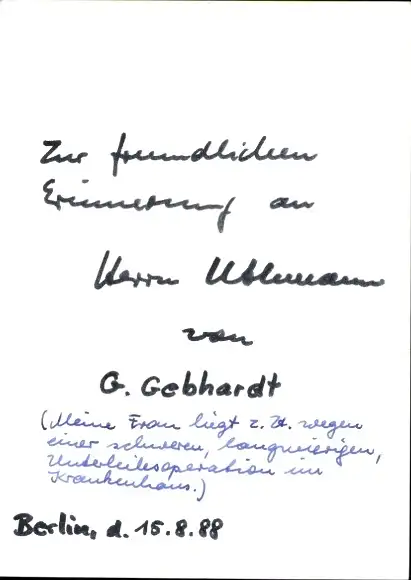 Zur freundlichen
Erinnerung an
Herrn Uhlmann
von
G. Gebhardt
(Meine Frau liegt z. Zt. wegen
einer schweren, langwierigen,
Unterleibsoperation im
Krankenhaus.)
Berlin, d. 15.8.88